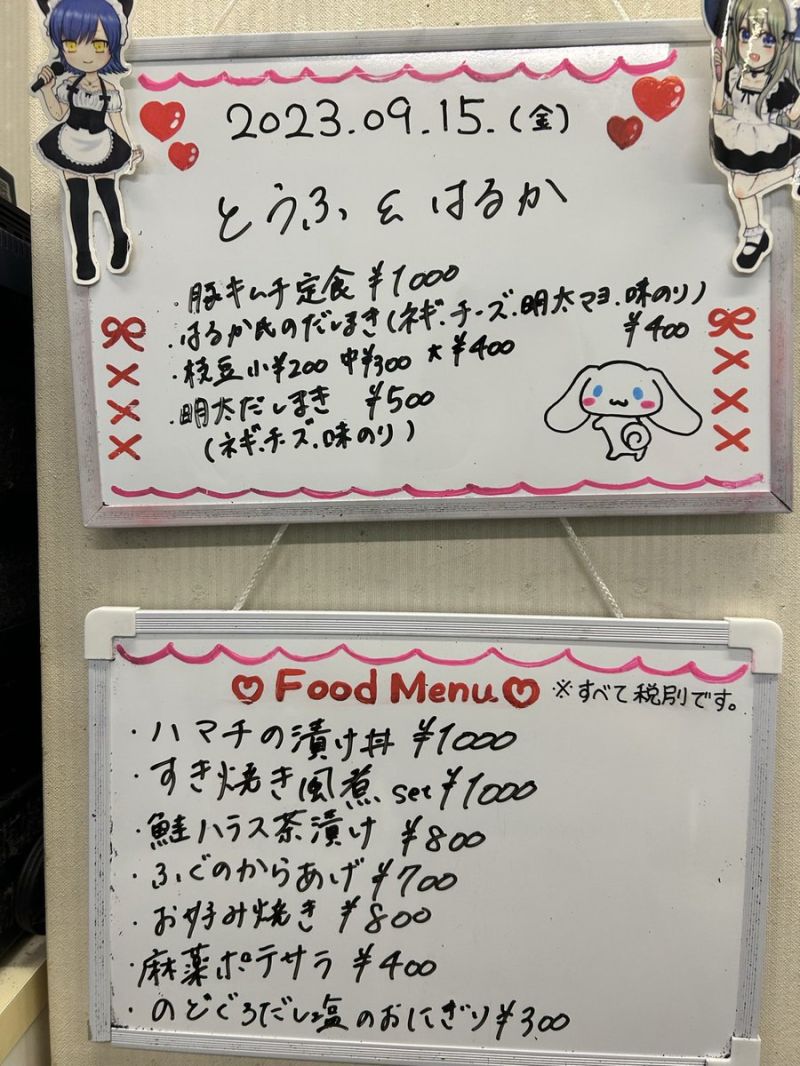 2023.09.15.(金)
とうふ & はるか
・豚キムチ定食 ¥1000
・はるか氏のだしまき(ネギ・チーズ・明太マヨ・味のり)
¥400
・枝豆 小¥200 中¥300 大¥400
・明太だしまき ¥500
(ネギ・チーズ・味のり)
Food Menu ※すべて税別です。
・ハマチの漬け丼 ¥1000
・すき焼き風煮set ¥1000
・鮭ハラス茶漬け ¥800
・ふぐのからあげ ¥700
・お好み焼き ¥800
・麻薬ポテサラ ¥400
・のどぐろだし塩のおにぎり ¥300